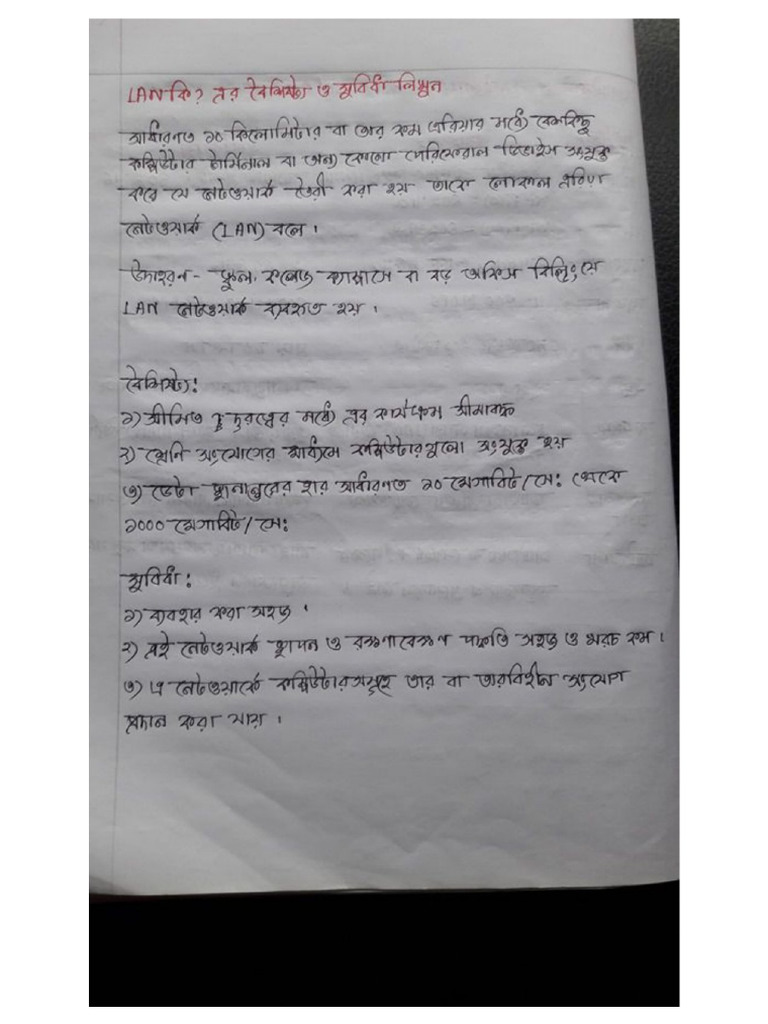 LAN কি? এর বৈশিষ্ট্য ও সুবিধা লিখুন
সাধারণত ১০ কিলোমিটার বা তার কম এরিয়ার মধ্যে বেশকিছু
কম্পিউটার টার্মিনাল বা অন্য কোনো পেরিফেরাল ডিভাইস সংযুক্ত
করে যে নেটওয়ার্ক তৈরী করা হয় তাকে লোকাল এরিয়া
নেটওয়ার্ক (LAN) বলে।
উদাহরন - স্কুল, কলেজ ক্যাম্পাসে বা বড় অফিস বিল্ডিং যে
LAN নেটওয়ার্ক ব্যবহৃত হয়।
বৈশিষ্ট্য:
১) সীমিত দুরত্বের মধ্যে এর কার্যক্রম সীমাবদ্ধ
২) শ্রেনি সংযোগের মাধ্যমে কম্পিউটারগুলো সংযুক্ত হয়
৩) ডেটা স্থানান্তরের হার সাধারণত ১০ মেগাবিট/সে: থেকে
১০০০ মেগাবিট/সে:
সুবিধা:
১) ব্যবহার করা সহজ।
২) এই নেটওয়ার্ক স্থাপন ও রক্ষণাবেক্ষণ পদ্ধতি সহজ ও খরচ কম।
৩) এ নেটওয়ার্কে কম্পিউটারসমূহে তার বা তারবিহীন সংযোগ
প্রদান করা যায়।